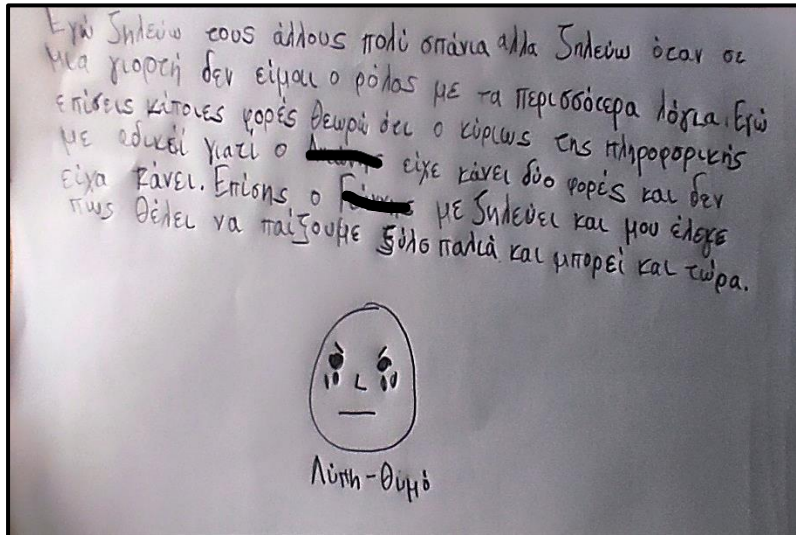 Εγώ ζηλεύω τους άλλους πολύ σπάνια αλλα ζηλεύω όταν σε
μια γιορτή δεν είμαι ο ρόλος με τα περισσότερα λόγια. Εγώ
επίσεις κάποιες φορές θεωρώ ότι ο κύριως της πληροφορικής
με αδικεί γιατί ο είχε κάνει δύο φορές και δεν
είχα κάνει. Επίσης ο με ζηλεύει και μου έλεγε
πως θέλει να παίξουμε ξύλο παλιά και μπορεί και τώρα.
Λύπη-Θυμό